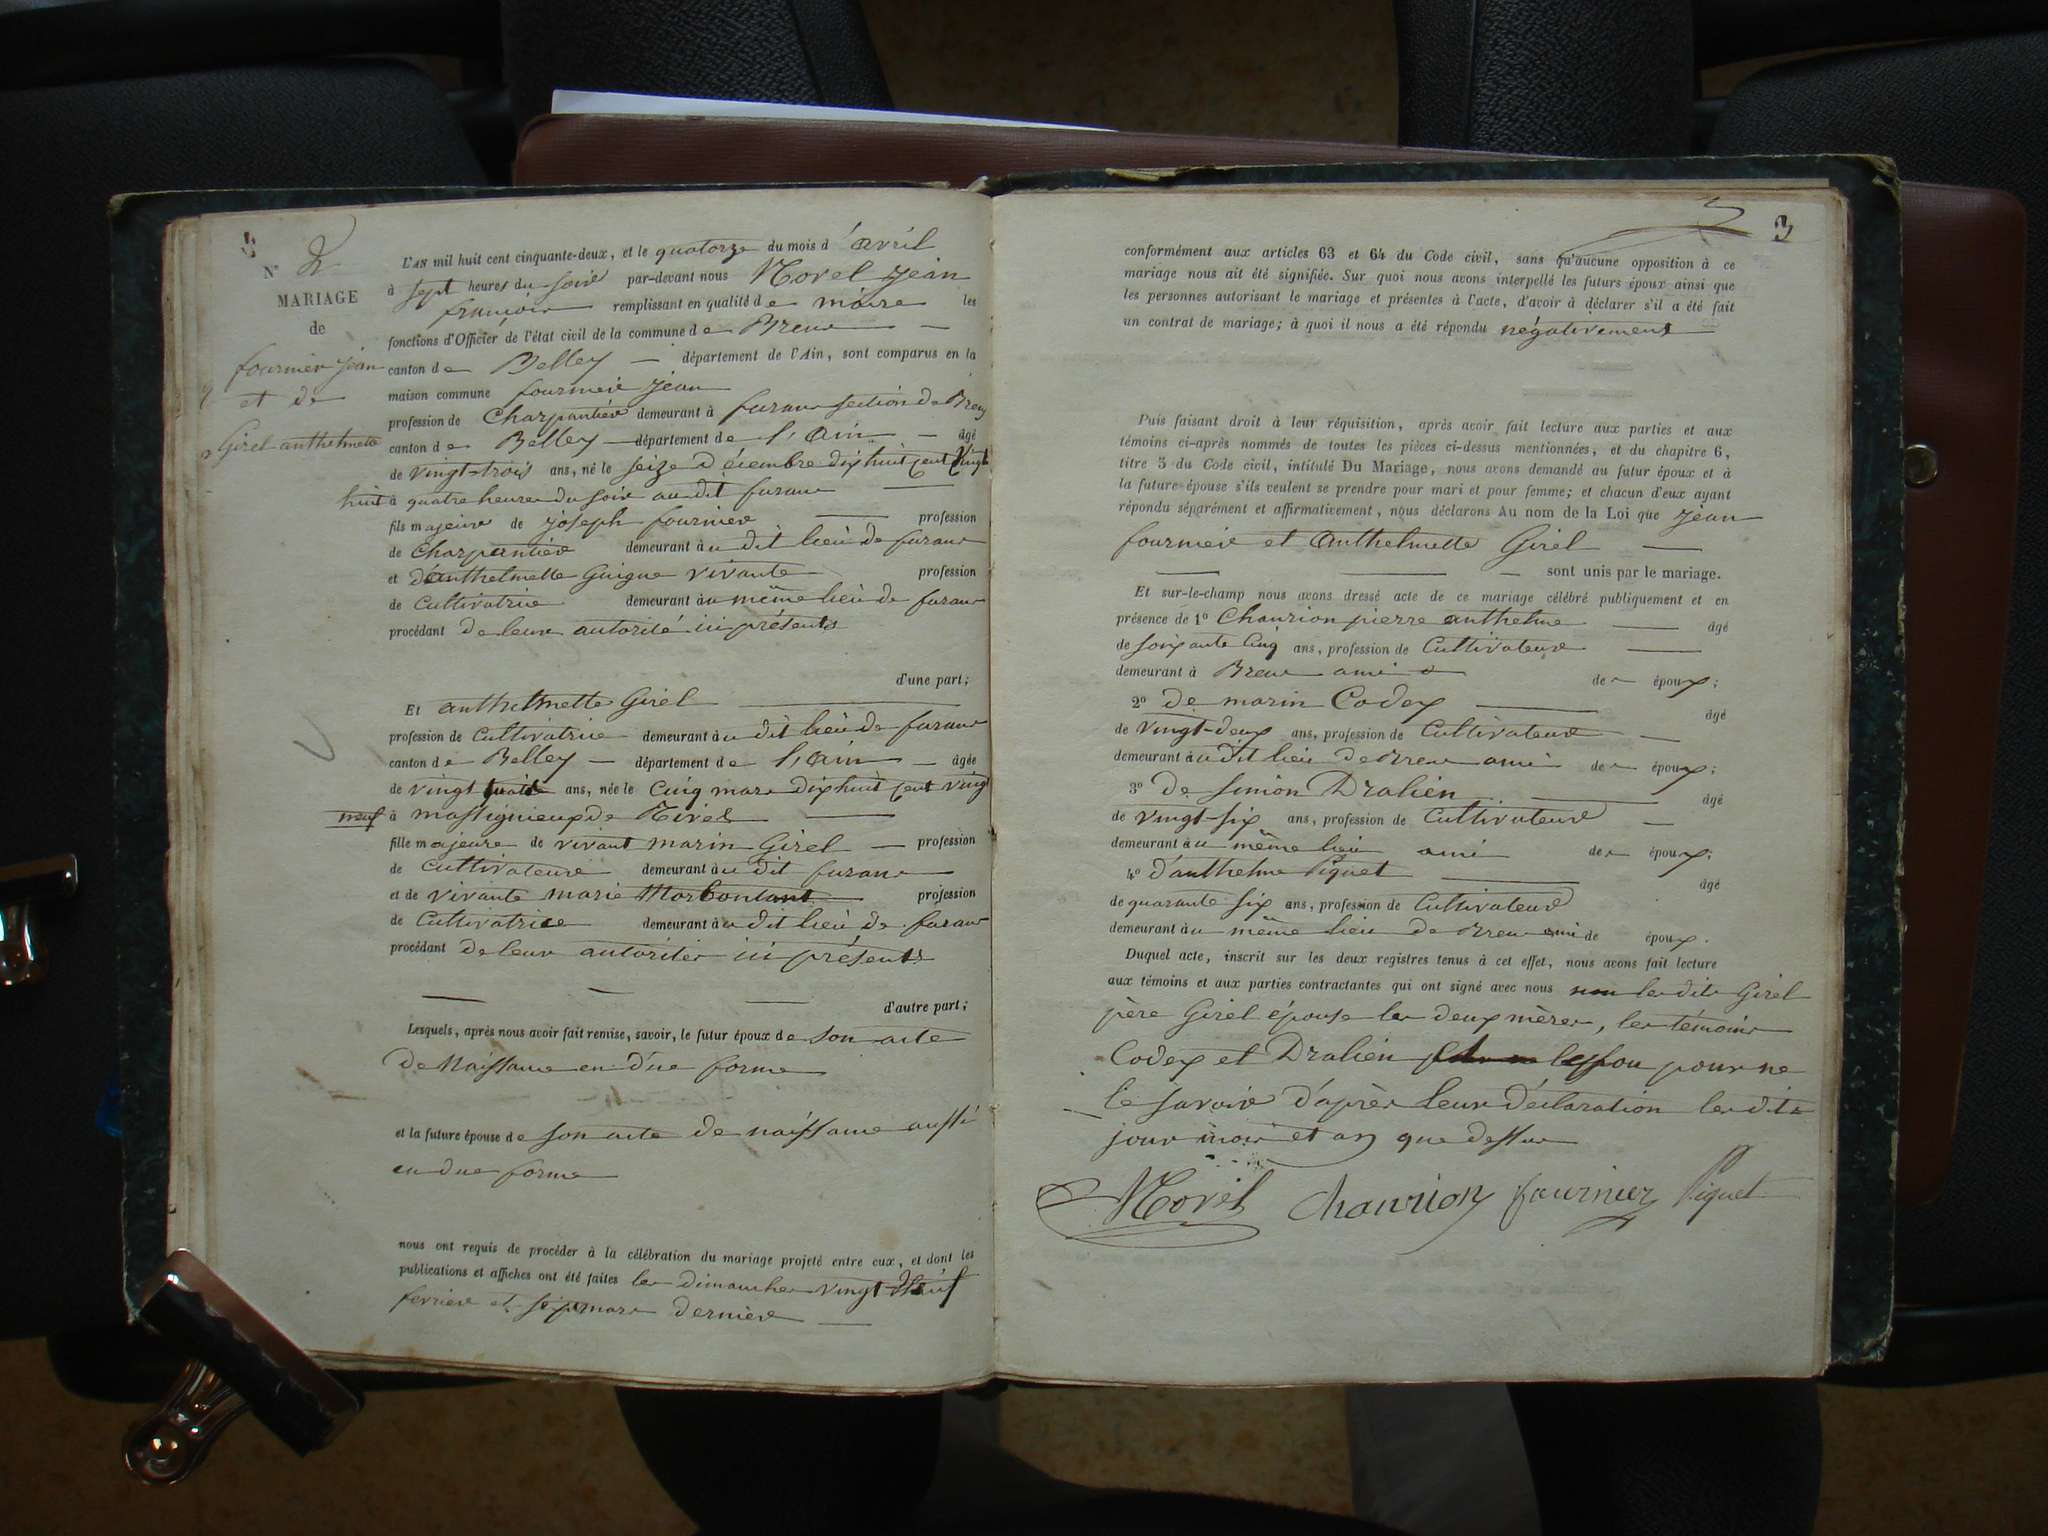 N° 2
MARIAGE
de
fournier jean
et de
Girel anthelmette
L'AN mil huit cent cinquante-deux, et le quatorze du mois d'avril
à sept heures du soir par-devant nous Morel jean
françois remplissant en qualité de maire les
fonctions d'Officier de l'état civil de la commune de Brens
canton de Belley département de l'Ain, sont comparus en la
maison commune fournier jean
profession de Charpentier demeurant à furans section de Brens
canton de Belley département de l'Ain âgé
de vingt-trois ans, né le seize décembre dix huit cent vingt
huit à quatre heures du soir audit furans
fils majeur de joseph fournier profession
de Charpentier demeurant au dit lieu de furans
et d'anthelmette Guigue vivante profession
de Cultivatrice demeurant au même lieu de furans
procédant de leur autorité ici présents
d'une part;
Et anthelmette Girel
profession de Cultivatrice demeurant au dit lieu de furans
canton de Belley département de l'Ain âgée
de vingt ans, née le Cinq mars dix huit cent vingt
neuf à massignieux de Rives
fille majeure de vivant marin Girel profession
de Cultivateur demeurant au dit furans
et de vivante marie profession
de Cultivatrice demeurant au dit lieu de furans
procédant de leur autorités ici présents
d'autre part;
Lesquels, après nous avoir fait remise, savoir, le futur époux de son acte
de Naissance en due forme
et la future épouse de son acte de naissance aussi
en due forme
nous ont requis de procéder à la célébration du mariage projeté entre eux, et dont les
publications et affiches ont été faites les dimanches vingt
fevrier et sept mars dernier
3
conformément aux articles 63 et 64 du Code civil, sans qu'aucune opposition à ce
mariage nous ait été signifiée. Sur quoi nous avons interpellé les futurs époux ainsi que
les personnes autorisant le mariage et présentes à l'acte, d'avoir à déclarer s'il a été fait
un contrat de mariage; à quoi il nous a été répondu négativement
Puis faisant droit à leur réquisition, après avoir fait lecture aux parties et aux
témoins ci-après nommés de toutes les pièces ci-dessus mentionnées, et du chapitre 6,
titre 5 du Code civil, intitulé Du Mariage, nous avons demandé au futur époux et à
la future épouse s'ils veulent se prendre pour mari et pour femme; et chacun d'eux ayant
répondu séparément et affirmativement, nous déclarons Au nom de la Loi que jean
fournier et anthelmette Girel
sont unis par le mariage.
Et sur-le-champ nous avons dressé acte de ce mariage célébré publiquement et en
présence de 1° Chaurion pierre anthelme âgé
de soixante Cinq ans, profession de Cultivateur
demeurant à Brens ami des époux;
2° de marin Codex âgé
de vingt-deux ans, profession de Cultivateur
demeurant au dit lieu de Brens ami des époux;
3° de simon Dralien âgé
de vingt-six ans, profession de Cultivateur
demeurant au même lieu ami des époux;
4° d'anthelme Piquet âgé
de quarante six ans, profession de Cultivateur
demeurant au même lieu de Brens ami de époux.
Duquel acte, inscrit sur les deux registres tenus à cet effet, nous avons fait lecture
aux témoins et aux parties contractantes qui ont signé avec nous non les dits Girel
père Girel épouse les deux mères, les témoins
Codex et Dralien pour ne
le savoir d'après leur déclaration les dits
jour mois et an que dessus
Morel Chaurion fournier Piquet